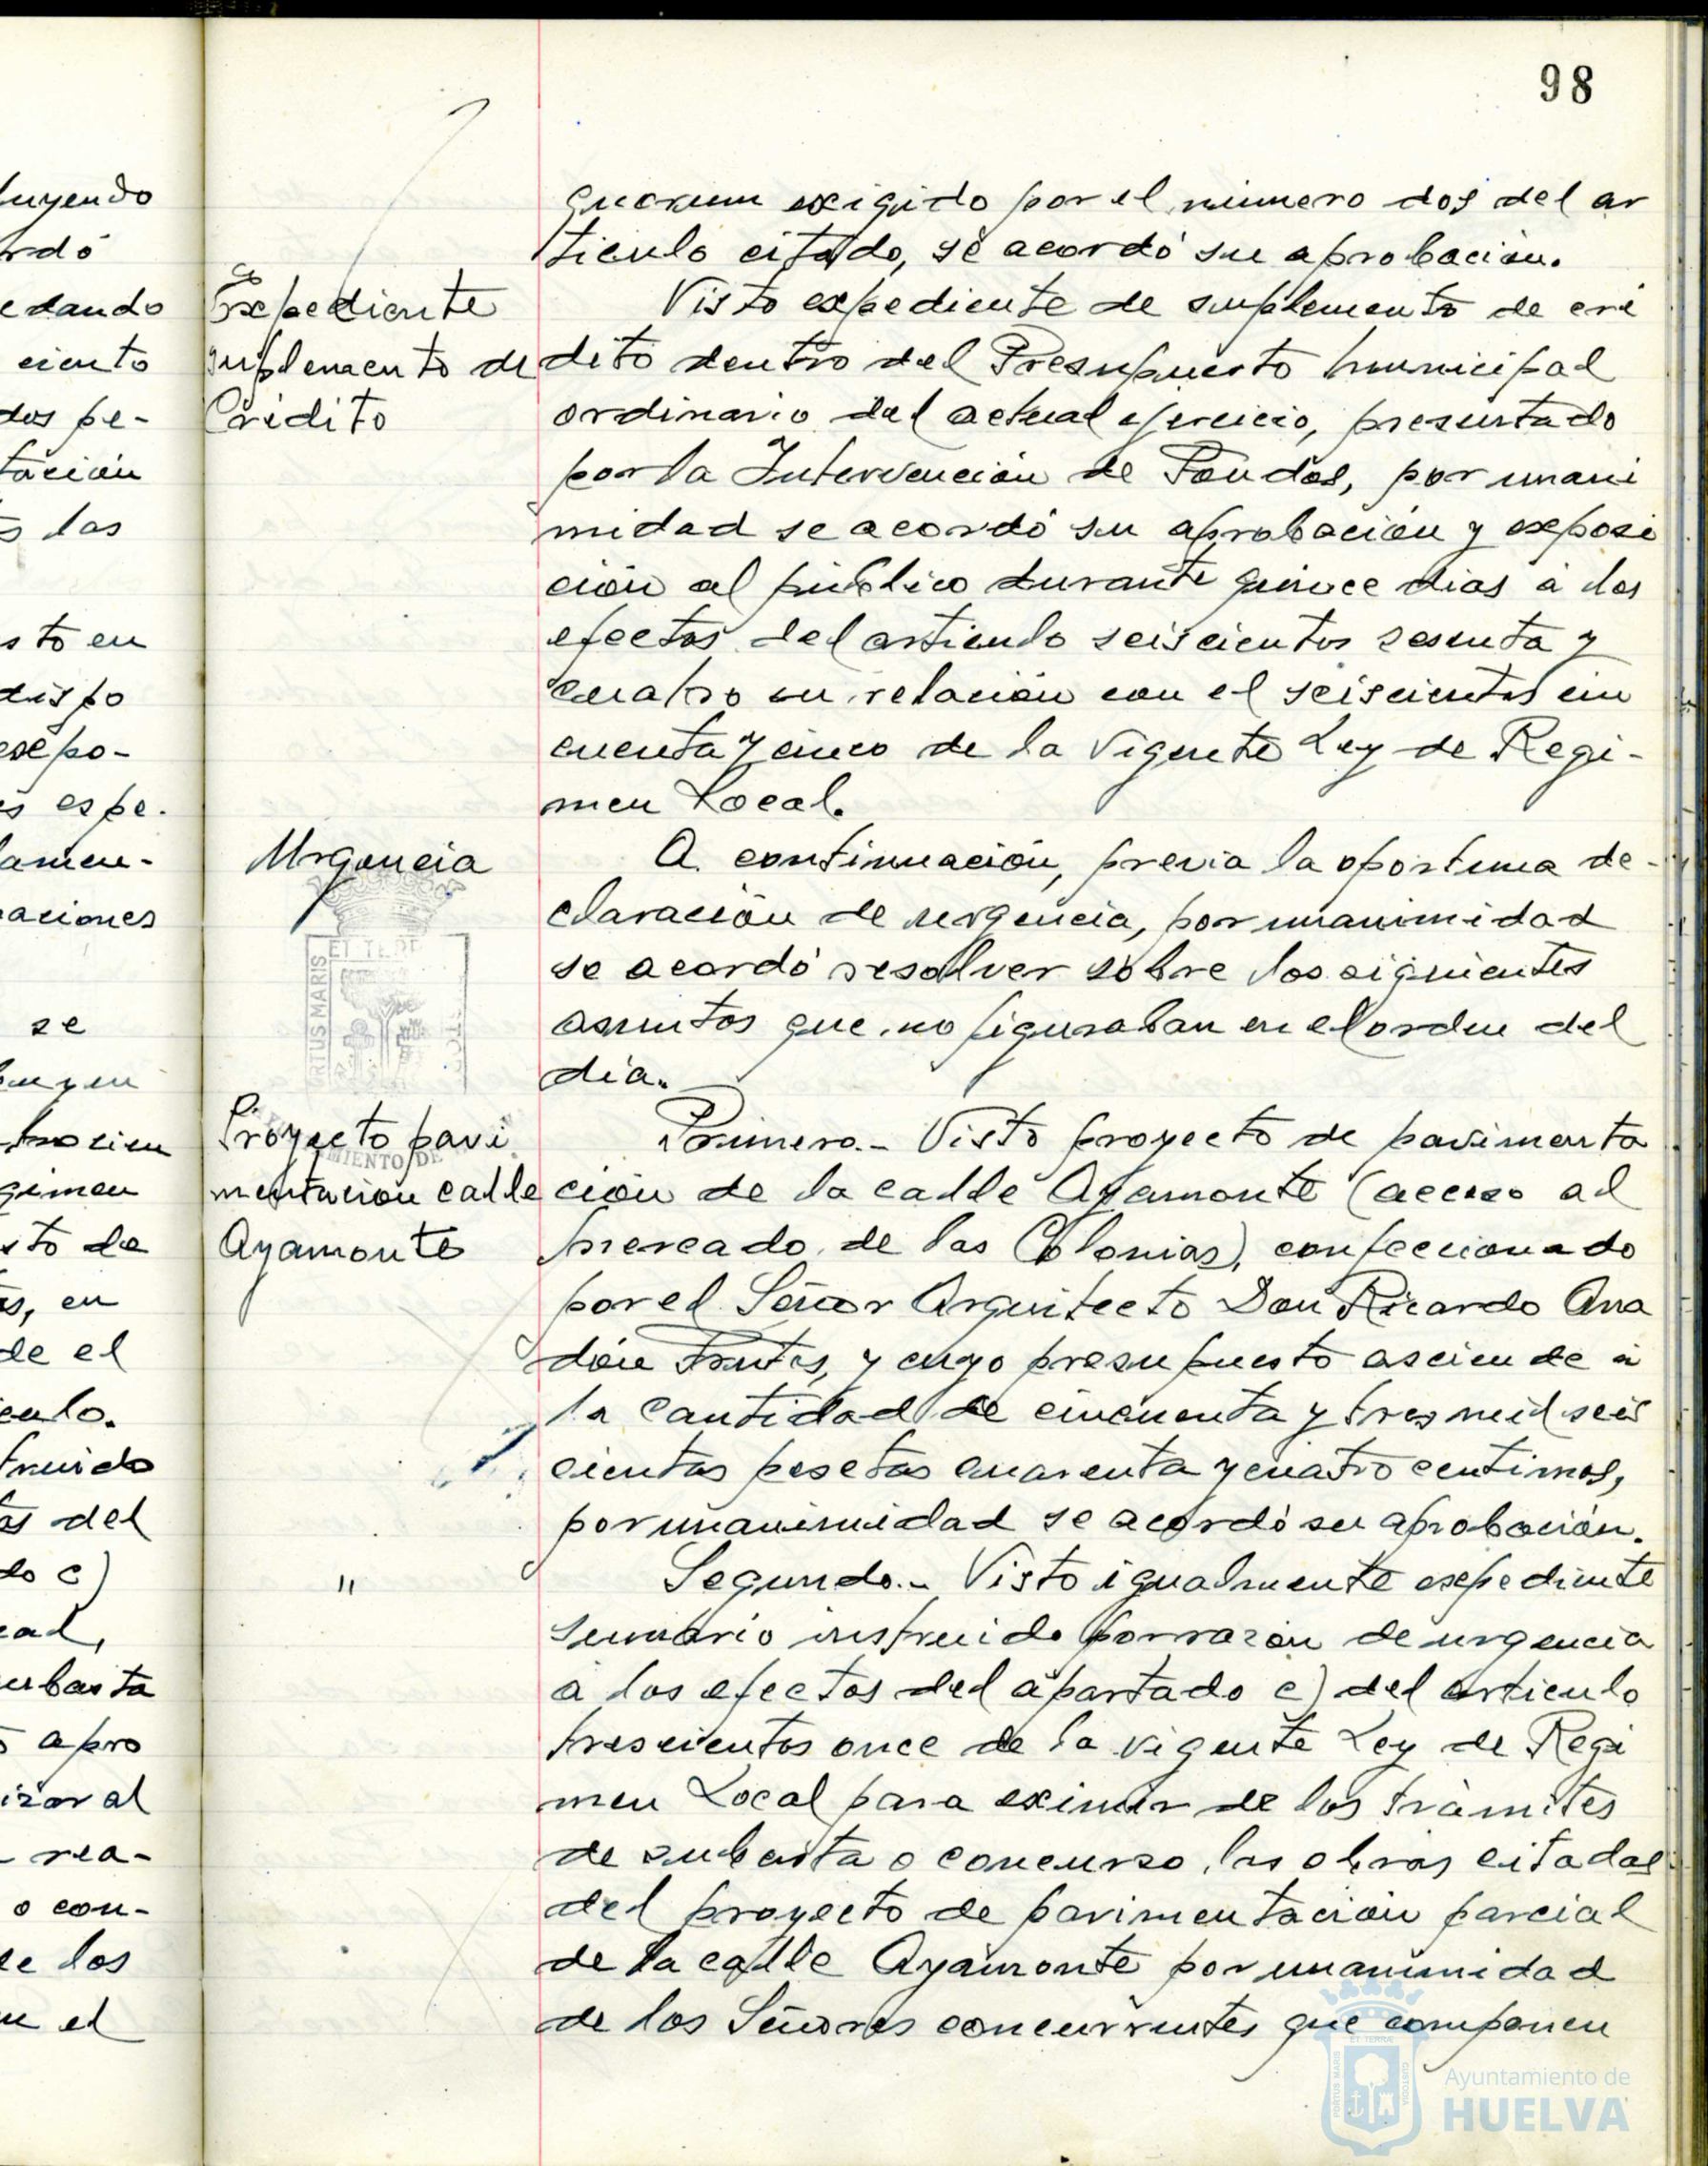 98
quorum exigido por el número dos del ar
tículo citado, se acordó su aprobación.
Expediente
suplemento de
Crédito
Visto expediente de suplemento de cré
dito dentro del Presupuesto municipal
ordinario del actual ejercicio, presentado
por la Intervención de Fondos, por unani
midad se acordó su aprobación y exposi
ción al público durante quince dias á los
efectos del artículo seiscientos sesenta y
cuatro en relación con el seiscientos cin
cuenta y cinco de la Vigente Ley de Regi-
men Local.
Urgencia
A continuación, previa la oportuna de-
claración de urgencia, por unanimidad
se acordó resolver sobre los siguientes
asuntos que no figuraban en el orden del
día.
Proyecto pavi
mentación calle
Ayamonte
Primero.- Visto proyecto de pavimenta
ción de la calle Ayamonte (acceso al
mercado de las Colonias), confeccionado
por el Señor Arquitecto Don Ricardo Ana
dón Frutos, y cuyo presupuesto asciende á
la cantidad de cincuenta y tres mil seis
cientas pesetas cuarenta y cuatro centimos,
por unanimidad se acordó su aprobación.
"
Segundo.- Visto igualmente expediente
sumario instruido por razón de urgencia
á los efectos del apartado c) del artículo
trescientos once de la vigente Ley de Regi
men Local para eximir de los trámites
de subasta o concurso, las obras citadas
del proyecto de pavimentación parcial
de la calle Ayamonte por unanimidad
de los Señores concurrentes que componen
luyendo
rdó
edando
ciento
dos pe-
tación
las
sto en
dispo
expo-
s espe-
lamen-
aciones
se
gimen
sto de
s, en
de el
culo.
truido
as del
do c)
ead,
ubasta
apro
izar al
rea-
o con-
de los
n el
PORTUS MARIS
ET TERRE
CUSTODIA
Ayuntamiento de
HUELVA